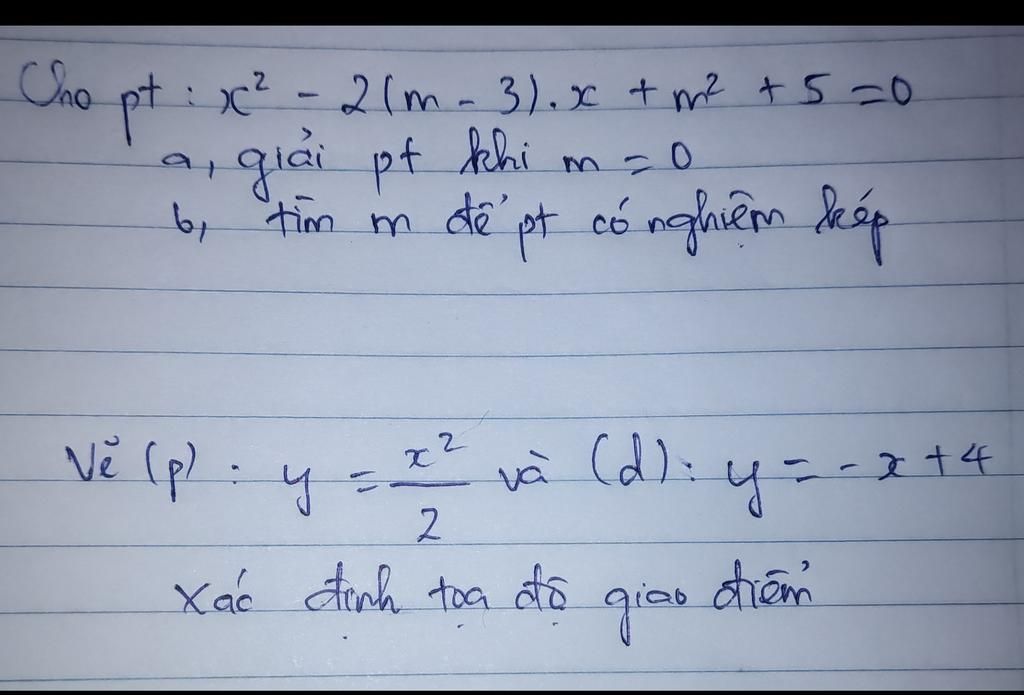 Cho pt : x² - 2(m - 3). x + m² + 5 = 0
a, giải pt khi m = 0
b, tìm m để pt có nghiệm kép
Vẽ (p) : y = x²/2 và (d) : y = - x + 4
Xác định tọa độ giao điểm